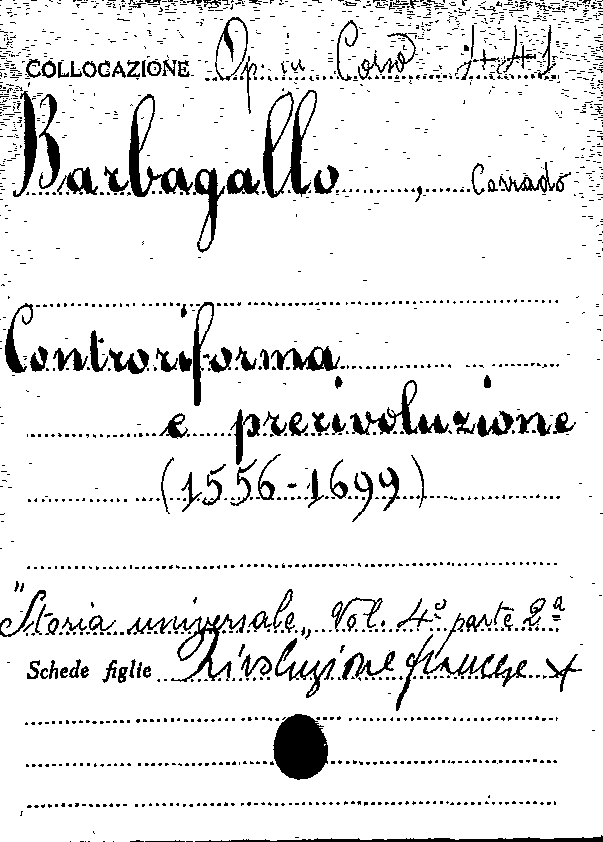 COLLOCAZIONE Op. in Corso 441
Barbagallo, Corrado
Controriforma
e prerivoluzione
(1556-1699)
"Storia universale„ Vol. 4º parte 2ª
Schede figlie Rivoluzione francese x